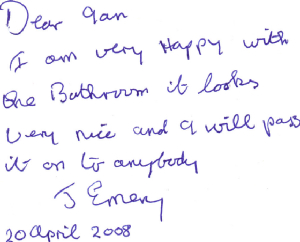 Dear Ian
I am very Happy with
the Bathroom it looks
very nice and I will pass
it on to anybody
J Emery
20 April 2008